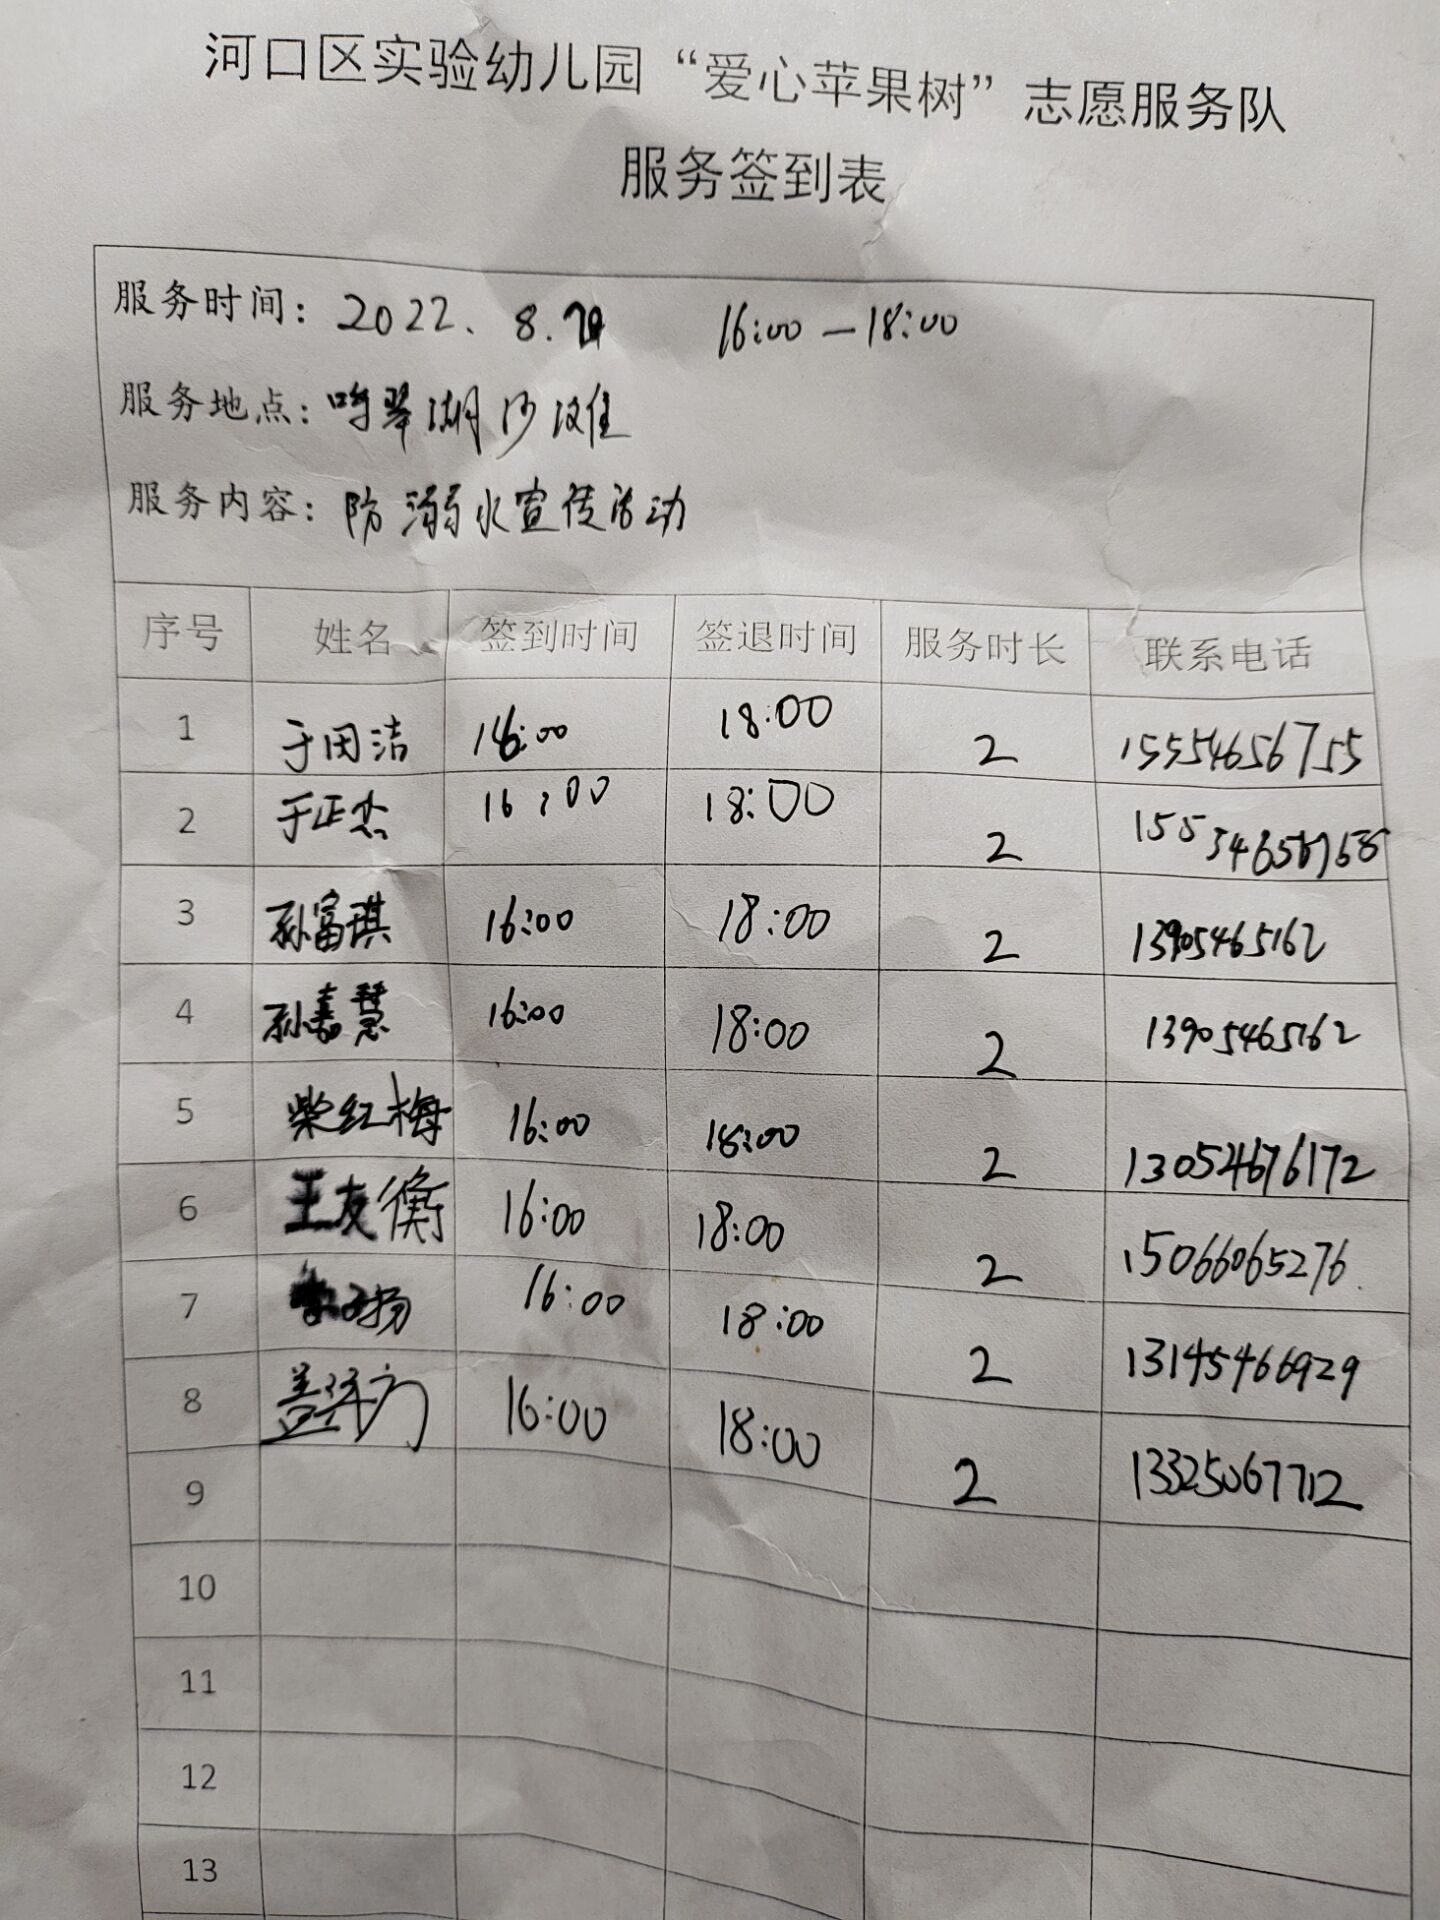 河口区实验幼儿园“爱心苹果树”志愿服务队
服务签到表
服务时间：2022.8. 16:00—18:00
服务地点：鸣翠湖沙滩
服务内容：防溺水宣传活动
序号 姓名 签到时间 签退时间 服务时长 联系电话
1 于田洁 16:00 18:00 2 15554656755
2 于正杰 16:00 18:00 2
3 孙富琪 16:00 18:00 2 13905465162
4 孙嘉慧 16:00 18:00 2 13905465162
5 柴红梅 16:00 18:00 2 13054676172
6 王友衡 16:00 18:00 2 15066065276
7 16:00 18:00 2 13145466929
8 16:00 18:00 2 13325067712
9
10
11
12
13